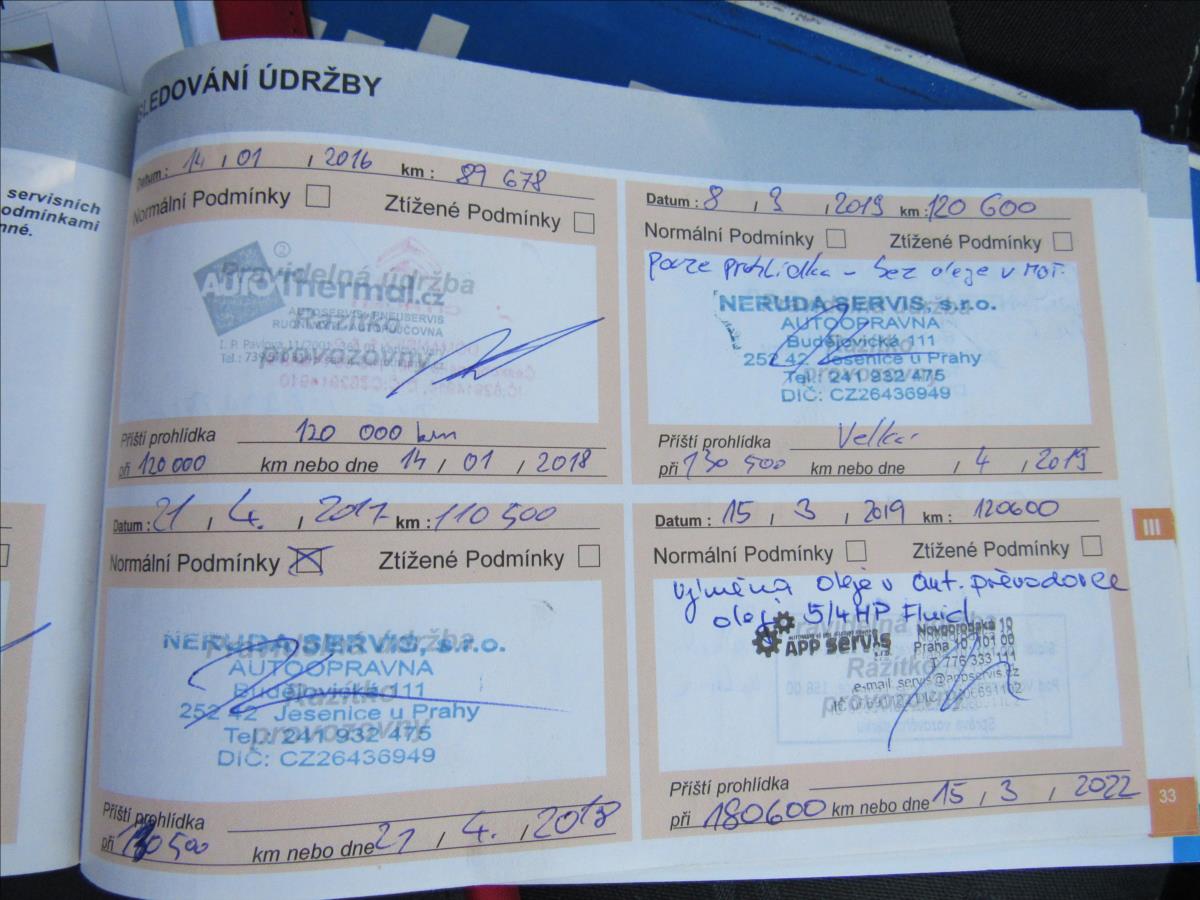 SLEDOVÁNÍ ÚDRŽBY
servisních
odmínkami
nné.
Datum : 14 / 01 / 2016 km : 89 678
Normální Podmínky Ztížené Podmínky
Pravidelná údržba
AUTOThermal.cz
AUTOSERVIS PNEUSERVIS
RUČNÍ MYTÍ AUTOPŮJČOVNA
Razítko
provozovny
Příští prohlídka 120 000 km
při 120 000 km nebo dne 14 / 01 / 2018
Datum : 21 / 4. / 2017 km : 110 500
Normální Podmínky Ztížené Podmínky
NERUDA SERVIS, s.r.o.
AUTOOPRAVNA
Budějovická 111
252 42 Jesenice u Prahy
Tel.: 241 932 475
DIČ: CZ26436949
Razítko
provozovny
Příští prohlídka
při 130 500 km nebo dne 21 / 4. / 2018
Datum : 8 / 3 / 2019 km : 120 600
Normální Podmínky Ztížené Podmínky
pouze prohlídka - bez oleje v mot.
NERUDA SERVIS, s.r.o.
AUTOOPRAVNA
Budějovická 111
252 42 Jesenice u Prahy
Tel.: 241 932 475
DIČ: CZ26436949
Razítko
provozovny
Příští prohlídka Velká
při 130 500 km nebo dne / 4 / 2019
Datum : 15 / 3 / 2019 km : 120600
Normální Podmínky Ztížené Podmínky
výměna oleje v aut. převodovce
olej 5/4HP Fluid
APP servis
Praha 10 101 00
T 776 333 111
e-mail servis@appservis.cz
Razítko
provozovny
Příští prohlídka
při 180600 km nebo dne 15 / 3 / 2022
III
33